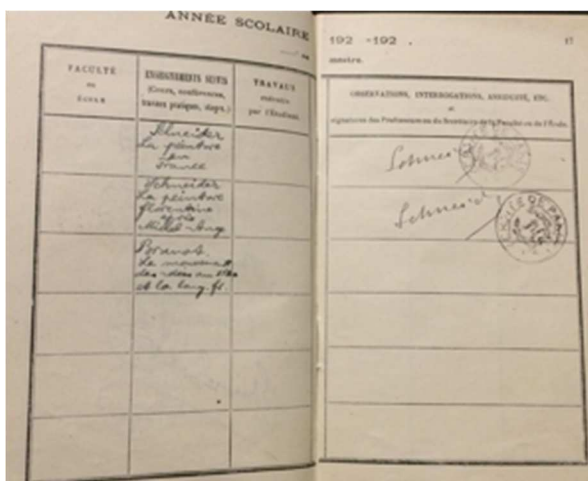 ANNÉE SCOLAIRE
192 -192 .
17
FACULTÉ
ou
ÉCOLE
ENSEIGNEMENTS SUIVIS
(Cours, conférences,
travaux pratiques, stages.)
TRAVAUX
exécutés
par l'Étudiant.
OBSERVATIONS, INTERROGATIONS, ASSIDUITÉ, ETC.
et
signatures des Professeurs ou du Secrétaire de la Faculté ou de l'École.
Schneider
La peinture
en
France
Schneider
La peinture
florentine
après
Michel-Ange
Le mouvement
des idées au
et la lang. fr.
Schneid
Schneid
DE PARIS